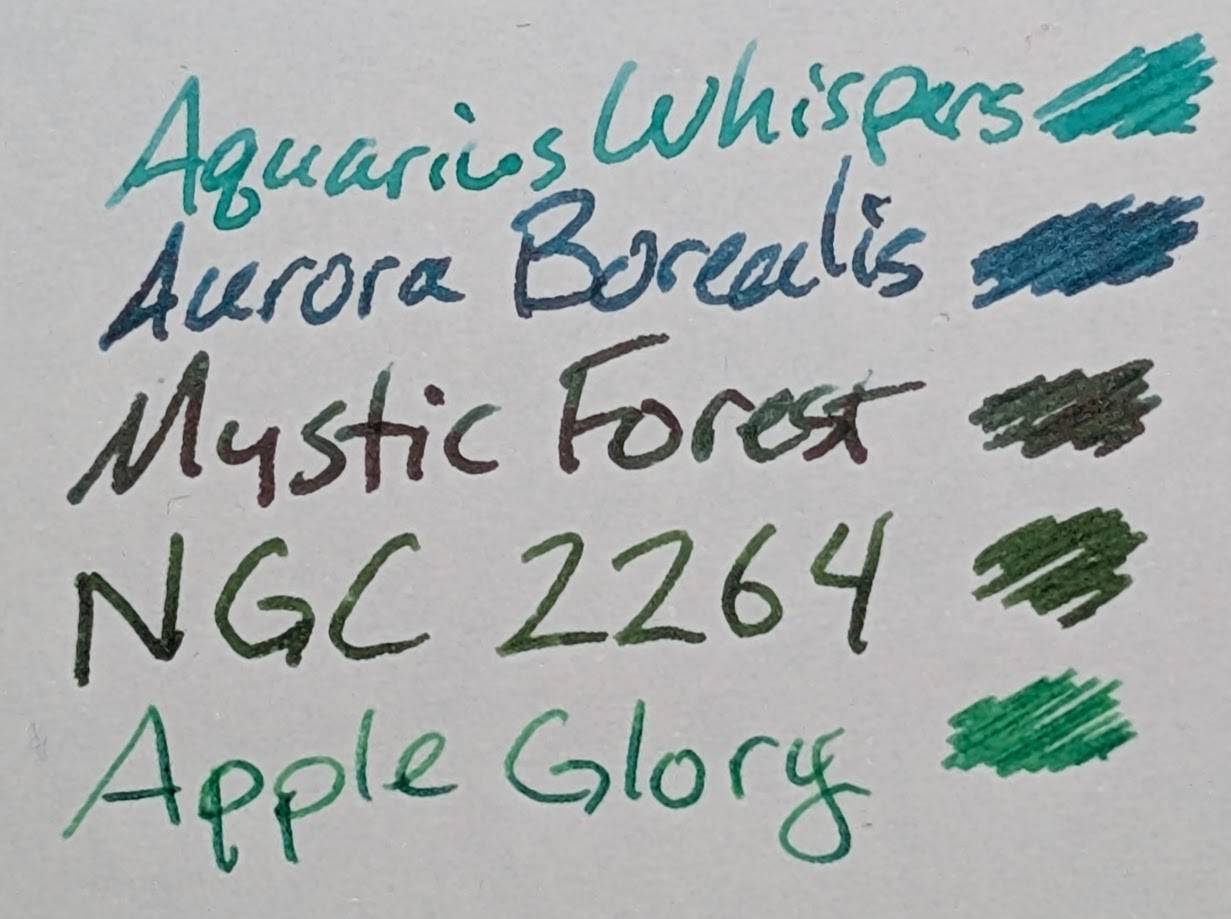 Aquarius Whispers
Aurora Borealis
Mystic Forest
NGC 2264
Apple Glory